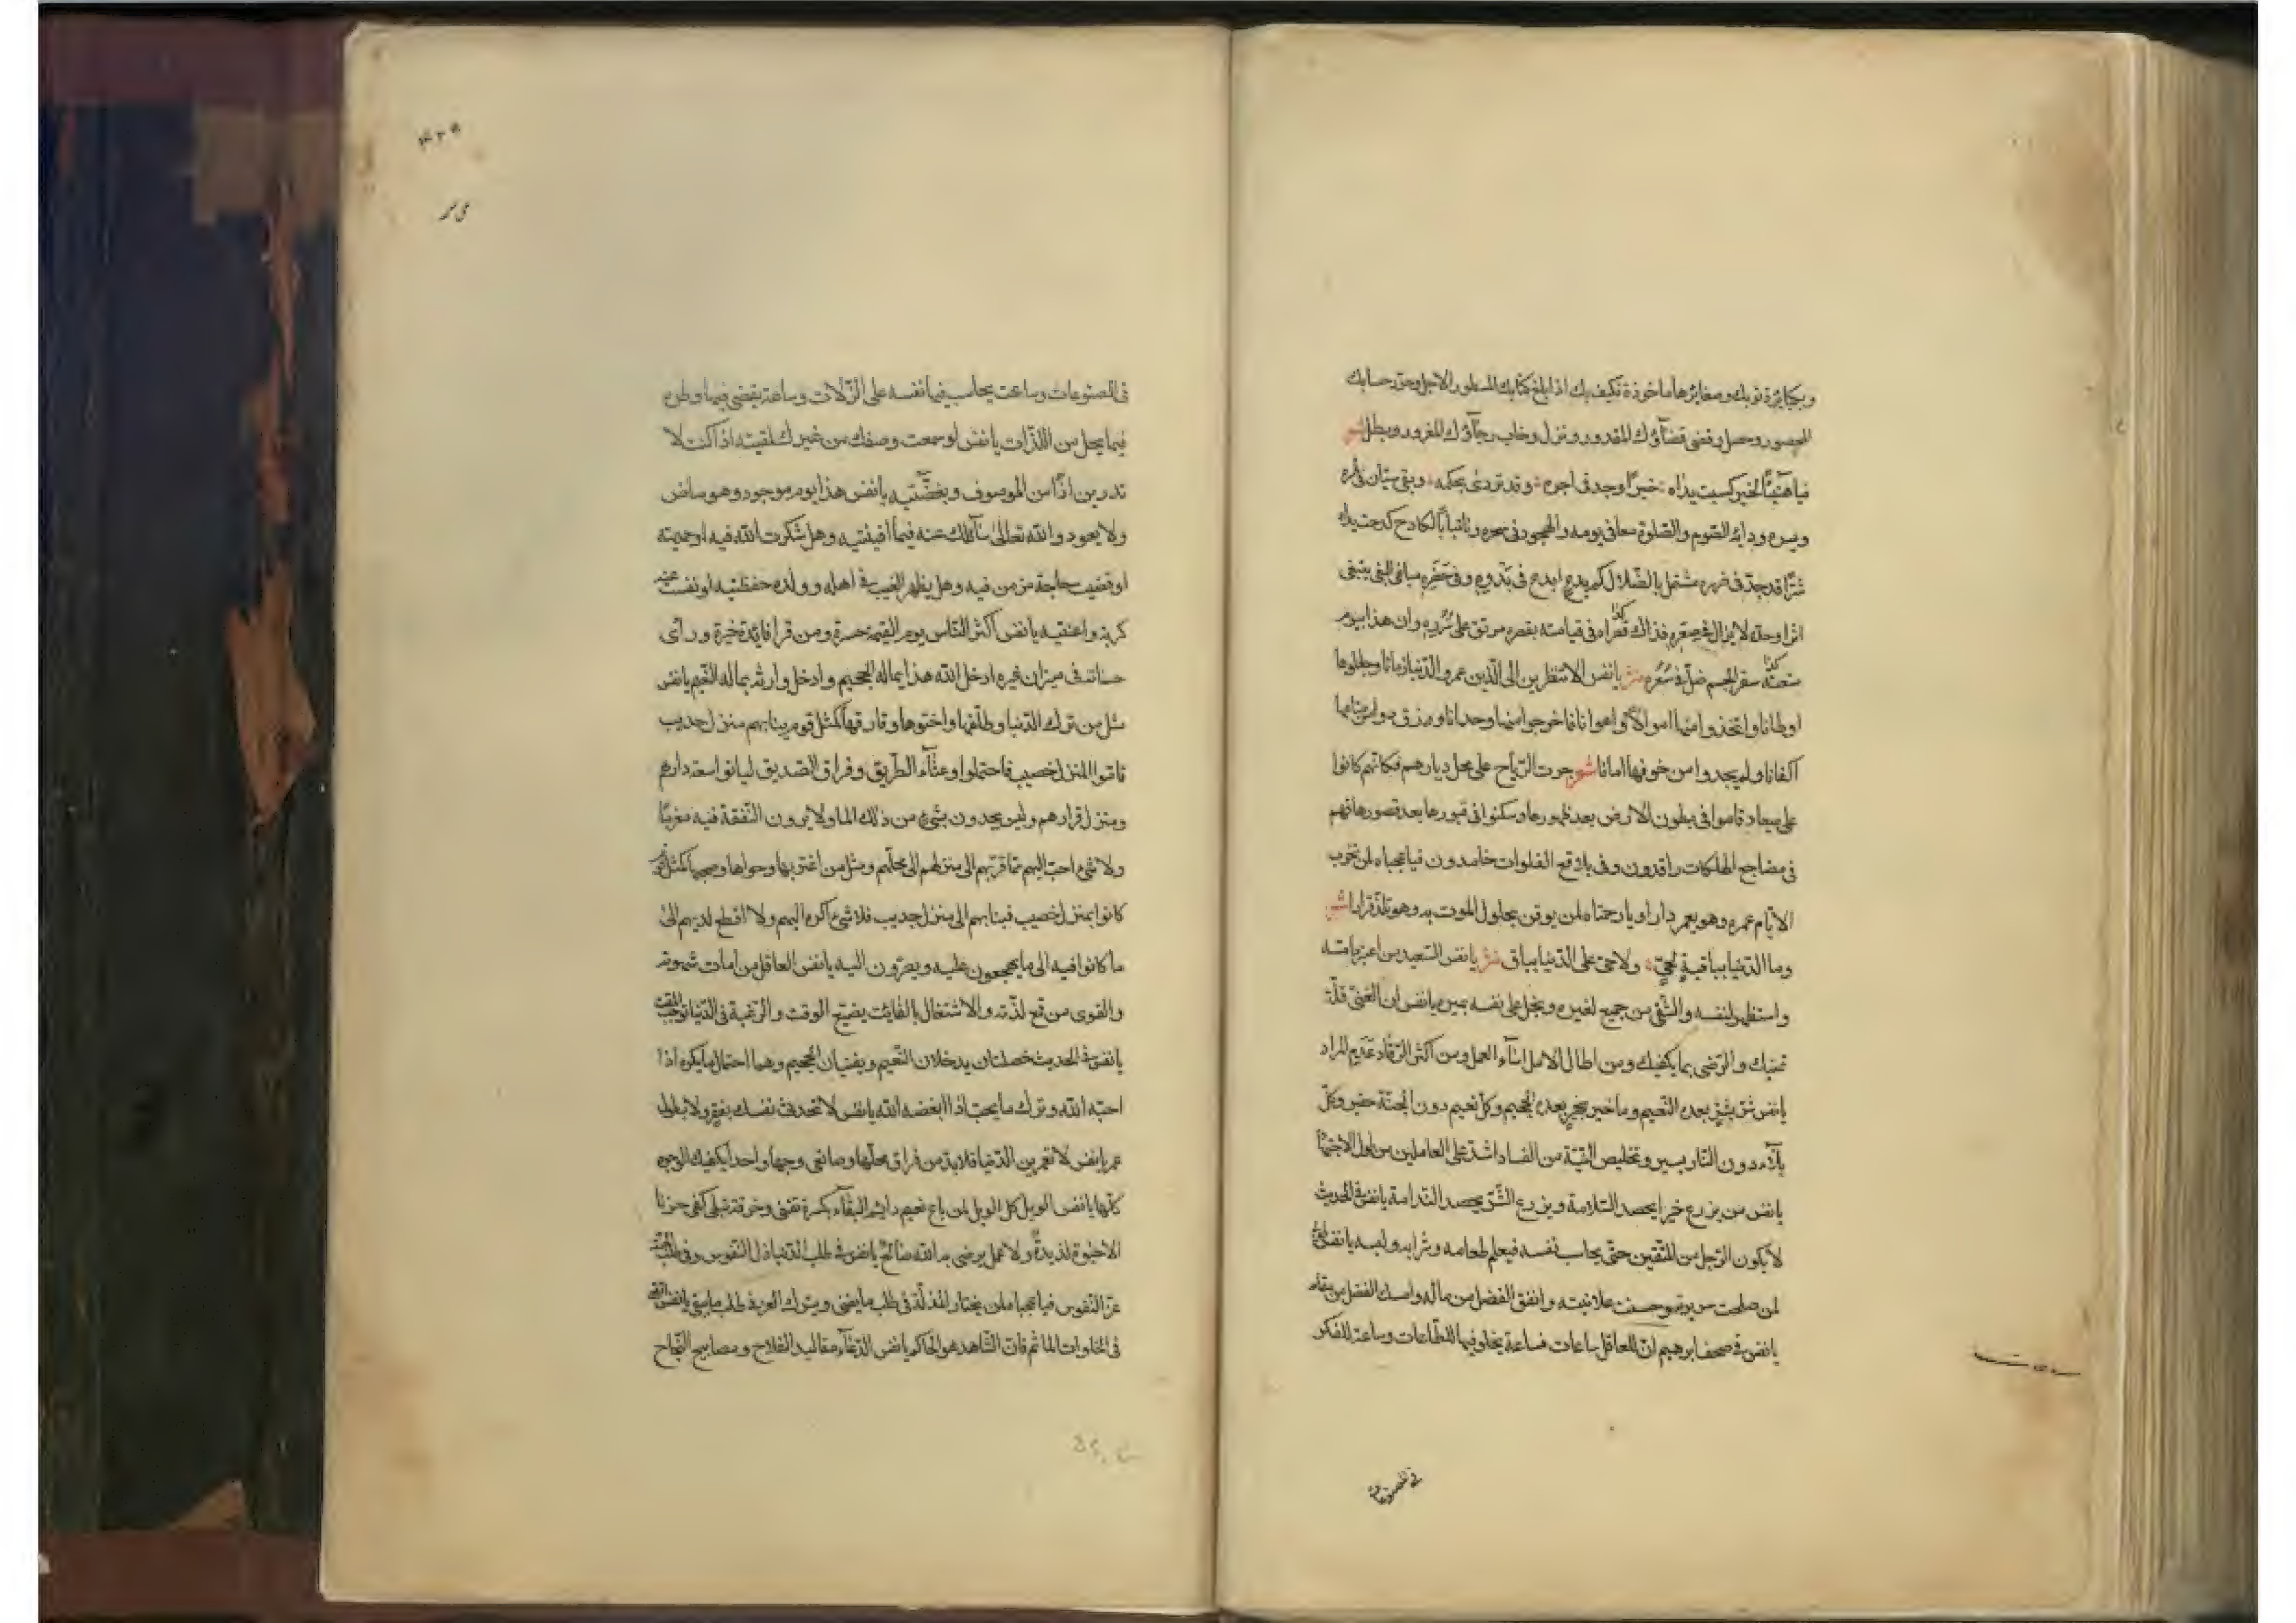 وبكبائرة ذنوبك وصغائرها ماخوذة فكيف بك اذا بلغ كتابك المسطور الاجل وحرر حسابك
المحصور وحصل وقضى قضاؤك المقدور ونزل وخاب رجاؤك المغرور وبطل شعر
فيا هنيئا لخير كسبت يداه خيرا وجد فى اجره وقد تردى بحكمه وبقى
ويسره ودابه الصوم والصلوة معا فى يومه والهجود فى سحره وتا تبابا لكادح كدحت يداه
شرا قد جد فى مشتغل بالضلال كم يدع ابدع فى بدوه وفى حضره مباغى البغى يبتغى
اشرا وحده لا يزال فى صعره فذاك تراه فى قيامته بقصره مرتق على سرره وان هذا بيوم
سقر الجسم ضل فى سعره نثر يا نفس الا تنظرين الى الذين عمروا الدنيا زمانا وجعلوها
اوطانا واتخذوا منها اموالا واهوانا فاخرجوا منها وحدانا ومزق
اكفانا ولم يجدوا من خوفها امانا شعر جرت الرياح على محل ديارهم فكانهم كانوا
على ميعاد قاموا فى بطون الارض بعد ظهورها وسكنوا فى قبورها بعد قصورها فهم
فى مضاجع الهلكات راقدون وفى بلاقع الفلوات خامدون فيا عجباه لمن تخرب
الايام عمره وهو يعمر دارا ويا رحمتاه لمن يوقن بحلول الموت به وهو تلذ قرارا شعر
وما الدنيا بباقية لحى ولا حى على الدنيا بباق نثر يا نفس السعيد من اعتبر بامسه
واستظهر لنفسه والشقى من جمع لغيره وبخل على نفسه بميره يا نفس ان الغنى قلة
تمنيك والرضى بما يكفيك ومن اطال الامل اساء العمل ومن اكثر الرقاد عدم المراد
يا نفس شر بشر بعده النعيم وما خير بخير بعده الجحيم وكل نعيم دون الجنة حقير وكل
بلاء دون النار يسير وتخليص النية من الفساد اشد على العاملين من طول الاجتهاد
يا نفس من يزرع خيرا يحصد السلامة ويزرع الشر يحصد الندامة يا نفس فى الحديث
لا يكون الرجل من المتقين حتى يحاسب نفسه فيعلم طعامه وشرابه ولبسه يا نفس
لمن صلحت سريرته وحسنت علانيته وانفق الفضل من ماله وامسك الفضل من مقاله
يا نفس فى صحف ابرهيم ان للعاقل ساعات فساعة يخلو فيها للطاعات وساعة للفكر
فى المصنوعات
فى المصنوعات وساعت يحاسب فيها نفسه على الزلات وساعة يقضى فيها وطره
فيما يحل من اللذات يا نفس لو سمعت وصفك من غيرك لمقتيه اذا كنت لا
تدرين اذا من الموصوف وبغضتيه يا نفس هذا يوم موجود وهو ماض
ولا يعود والله تعالى سائلك عنه فيما افنيتيه وهل شكرت الله فيه او حمدتيه
او قضيت حاجة مؤمن فيه وهل بظهر الغيب فى اهله وولده حفظتيه او نفست عنه
كربة واعنتيه يا نفس اكثر الناس يوم القيمة حسرة ومن قرا فائدة خيرة وراى
حسناته فى ميزان غيره ادخل الله هذا بماله الجحيم وادخل وارثه بماله النعيم يا نفس
مثل من ترك الدنيا وطلقها واختوها وفارقها كمثل قوم بنابهم منزل جديب
فاتوا المنزل خصيب فاحتملوا وعثاء الطريق وفراق الصديق لياتوا سعة دارهم
ومنزل قرارهم وليس يجدون بشىء من ذلك الما ولا يرون النفقة فيه مغرما
ولا شىء احب اليهم مما قربهم الى منزلهم الى محلهم ومثل من اغتر بها وحواها وصحبها كمثل قوم
كانوا بمنزل خصيب فنبا بهم الى منزل جديب فلا شىء اكره اليهم ولا افظع لديهم الى
ما كانوا فيه الى ما يهجعون عليه ويصيرون اليه يا نفس العاقل من امات شهوته
والقوى من قمع لذته والاشتغال بالفائت يضيع الوقت والرغبة فى الدنيا توجب المقت
يا نفس فى الحديث خصلتان يدخلان النعيم وينفيان الجحيم وهما احتمال ما يكره اذا
احبه الله وترك ما يحب اذا ابغضه الله يا نفس لا تحدث نفسك بفقر ولا بطول
عمر يا نفس لا تعمرين الدنيا فلا بد من فراق محلها وصانعى وجها واحدا يكفيك الوجوه
كلها يا نفس الويل كل الويل لمن باع نعيم دايم البقاء بكسرة تفنى وخرقة تبلى كفى حزنا
الا حيوة لذيذة ولا عمل يرضى به الله صالح يا نفس فى طلب الدنيا ذل النفوس وفى طلب الجنة
عز النفوس فيا عجبا لمن يختار المذلة فى طلب ما يفنى ويترك العز فى طلب ما يبقى يا نفس اتقى
فى الخلوات الماثم فان الشاهد هو الحاكم يا نفس الدعاء مقاليد الفلاح ومصابيح النجاح